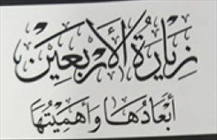 زِيَارَةُ الأَرْبَعِيْن
أَبْعَادُهَا وَأَهَمِّيَّتُهَا